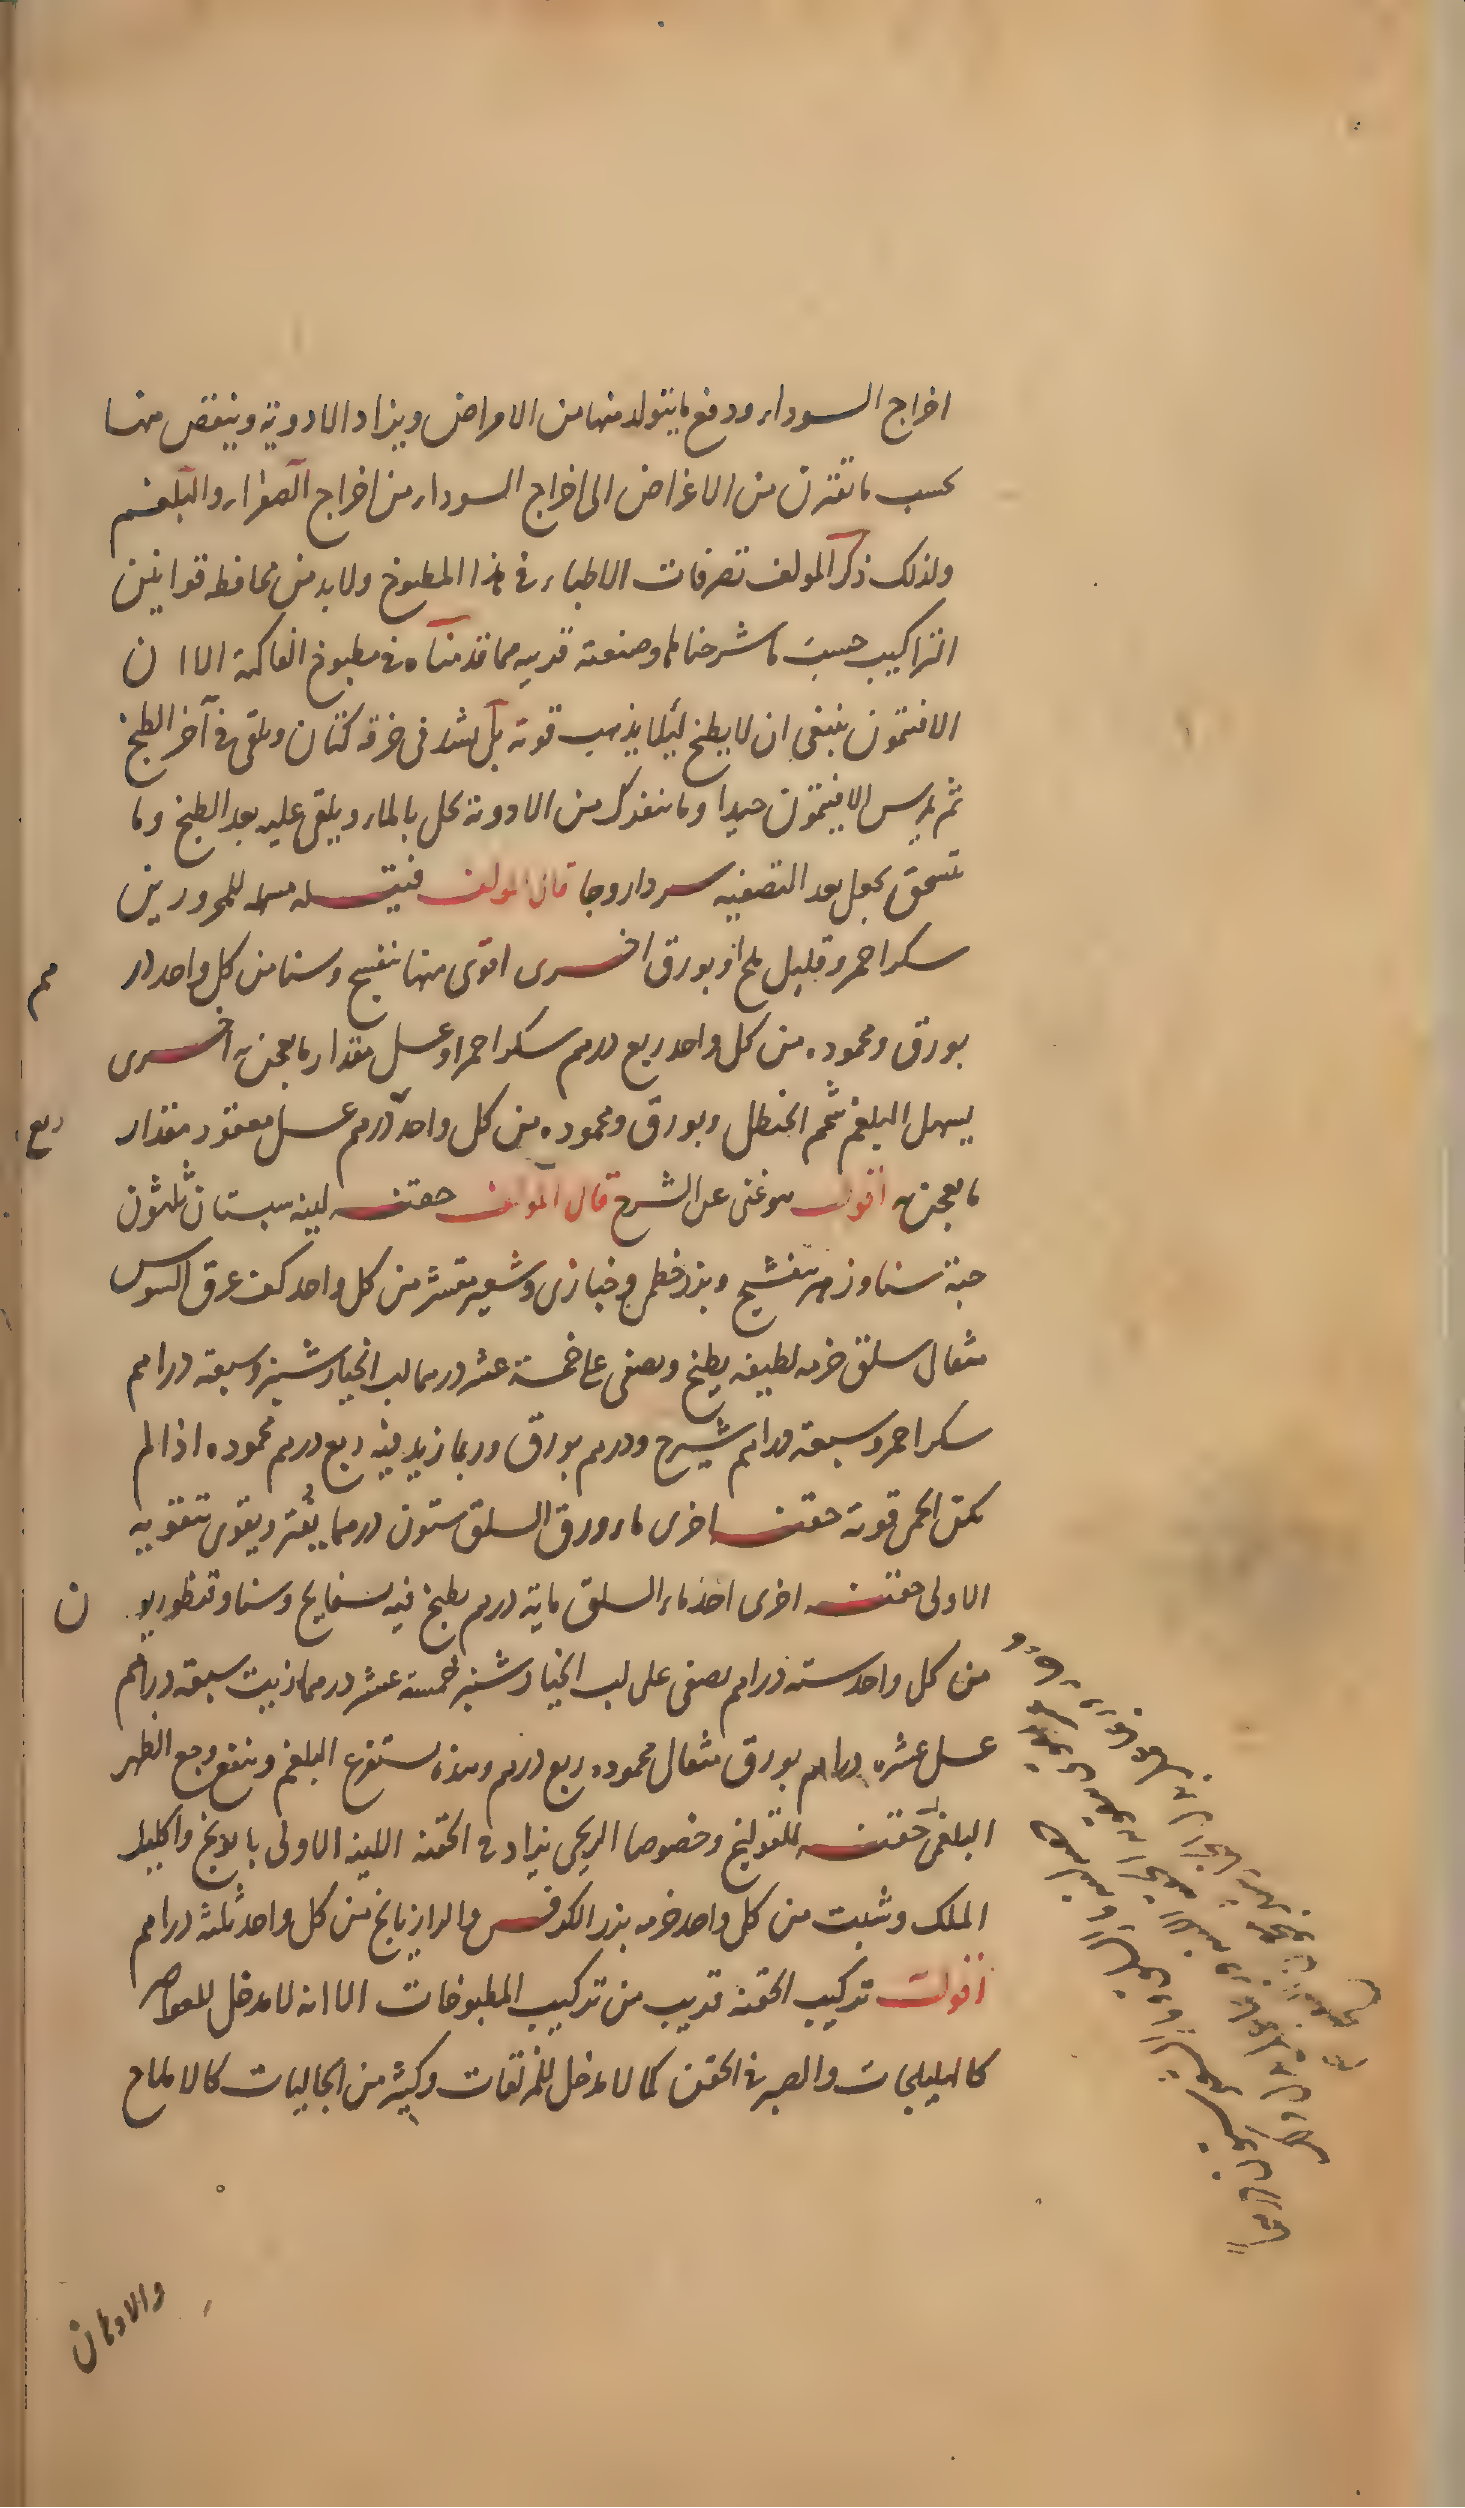 اخراج السوداء ودفع ما يتولد منها من الامراض ويزاد الادوية وينقص منها
بحسب ما تقترن من الاغراض الى اخراج السوداء من اخراج الصفراء والبلغم
ولذلك ذكر المولف تصرفات الاطباء في هذا المطبوخ ولا بد من محافظه قوانين
التراكيب حسب ما شرحناها وصنعته قريبه مما قدمناه في مطبوخ الفاكهة الا ان
الافتمون ينبغي ان لا يطبخ ليلا يذهب قوته بل يشد في خرقه كتان ويلقى في آخر الطبخ
ثم يمرس الافيتمون جيدا وما ينفرك من الادوية يحل بالماء ويلقى عليه بعد الطبخ وما
تسحق يجعل بعد التصفيه قال المولف فتيتله مسهله للمحرورين
سكر احمر وقليل ملح او بورق اخرى اقوى منها بنفسج وسنا من كل واحد در
هم
بورق ومحموده من كل واحد ربع درهم سكر احمر او عسل مقدار ما يعجن به اخرى
يسهل البلغم شحم الحنظل وبورق ومحموده من كل واحد درهم عسل معقود مقدار
ربع
ما يعجن به اقول هو غنى عن الشرح قال المولف حقنه لينه سبستان ثلثون
حبة سنا وزهر بنفسج وبزر خطمي وخبازى وشعير مقشر من كل واحد كف عرق السوس
مثقال سلق حزمه لطيفه يطبخ ويصفى على خمسة عشر درهما لب الخيار شنبر وسبعة دراهم
سكر احمر وسبعة دراهم شيرج ودرهم بورق وربما زيد فيه ربع درهم محموده اذا لم
يكن الحمى قوية حقنه اخرى ماء ورق السلق ستون درهما يفتر ويقوى بتقويه
الاولى حقنه اخرى اخذ ماء السلق مايه درهم يطبخ فيه بسفايج وسنا وقنطوريو
ن
من كل واحد سته دراهم يصفى على لب الخيار شنبر خمسة عشر درهما زيت سبعه دراهم
عسل عشره دراهم بورق مثقال محموده ربع درهم وهذه يستفرغ البلغم وينفع وجع الظهر
البلغمى حقنه للقولنج وخصوصا الريحى يزاد في الحقنه اللينه الاولى بابونج واكليل
الملك وشبت من كل واحد حزمه بزر الكرفس والرازيانج من كل واحد ثلثه دراهم
اقول تركيب الحقنه قريب من تركيب المطبوخات الا انه لا مدخل للعواصر
كالهليلجات والصبر في الحقن كما لا مدخل للمزلقات وكثير من الجاليات كالاملاح
والادهان